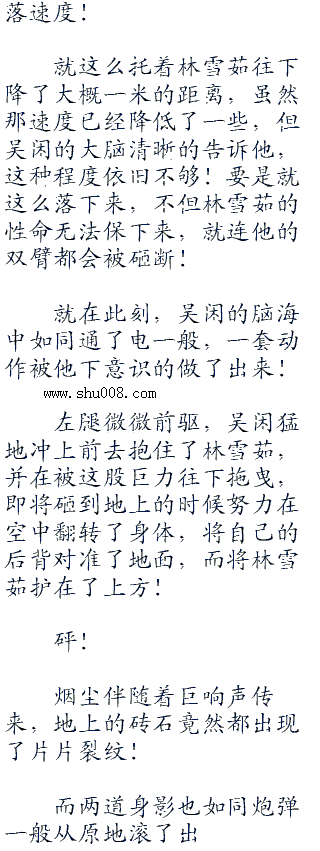 落速度！
就这么托着林雪茹往下
降了大概一米的距离，虽然
那速度已经降低了一些，但
吴闲的大脑清晰的告诉他，
这种程度依旧不够！要是就
这么落下来，不但林雪茹的
性命无法保下来，就连他的
双臂都会被砸断！
就在此刻，吴闲的脑海
中如同通了电一般，一套动
作被他下意识的做了出来！
www.shu008.com
左腿微微前驱，吴闲猛
地冲上前去抱住了林雪茹，
并在被这股巨力往下拖曳，
即将砸到地上的时候努力在
空中翻转了身体，将自己的
后背对准了地面，而将林雪
茹护在了上方！
砰！
烟尘伴随着巨响声传
来，地上的砖石竟然都出现
了片片裂纹！
而两道身影也如同炮弹
一般从原地滚了出